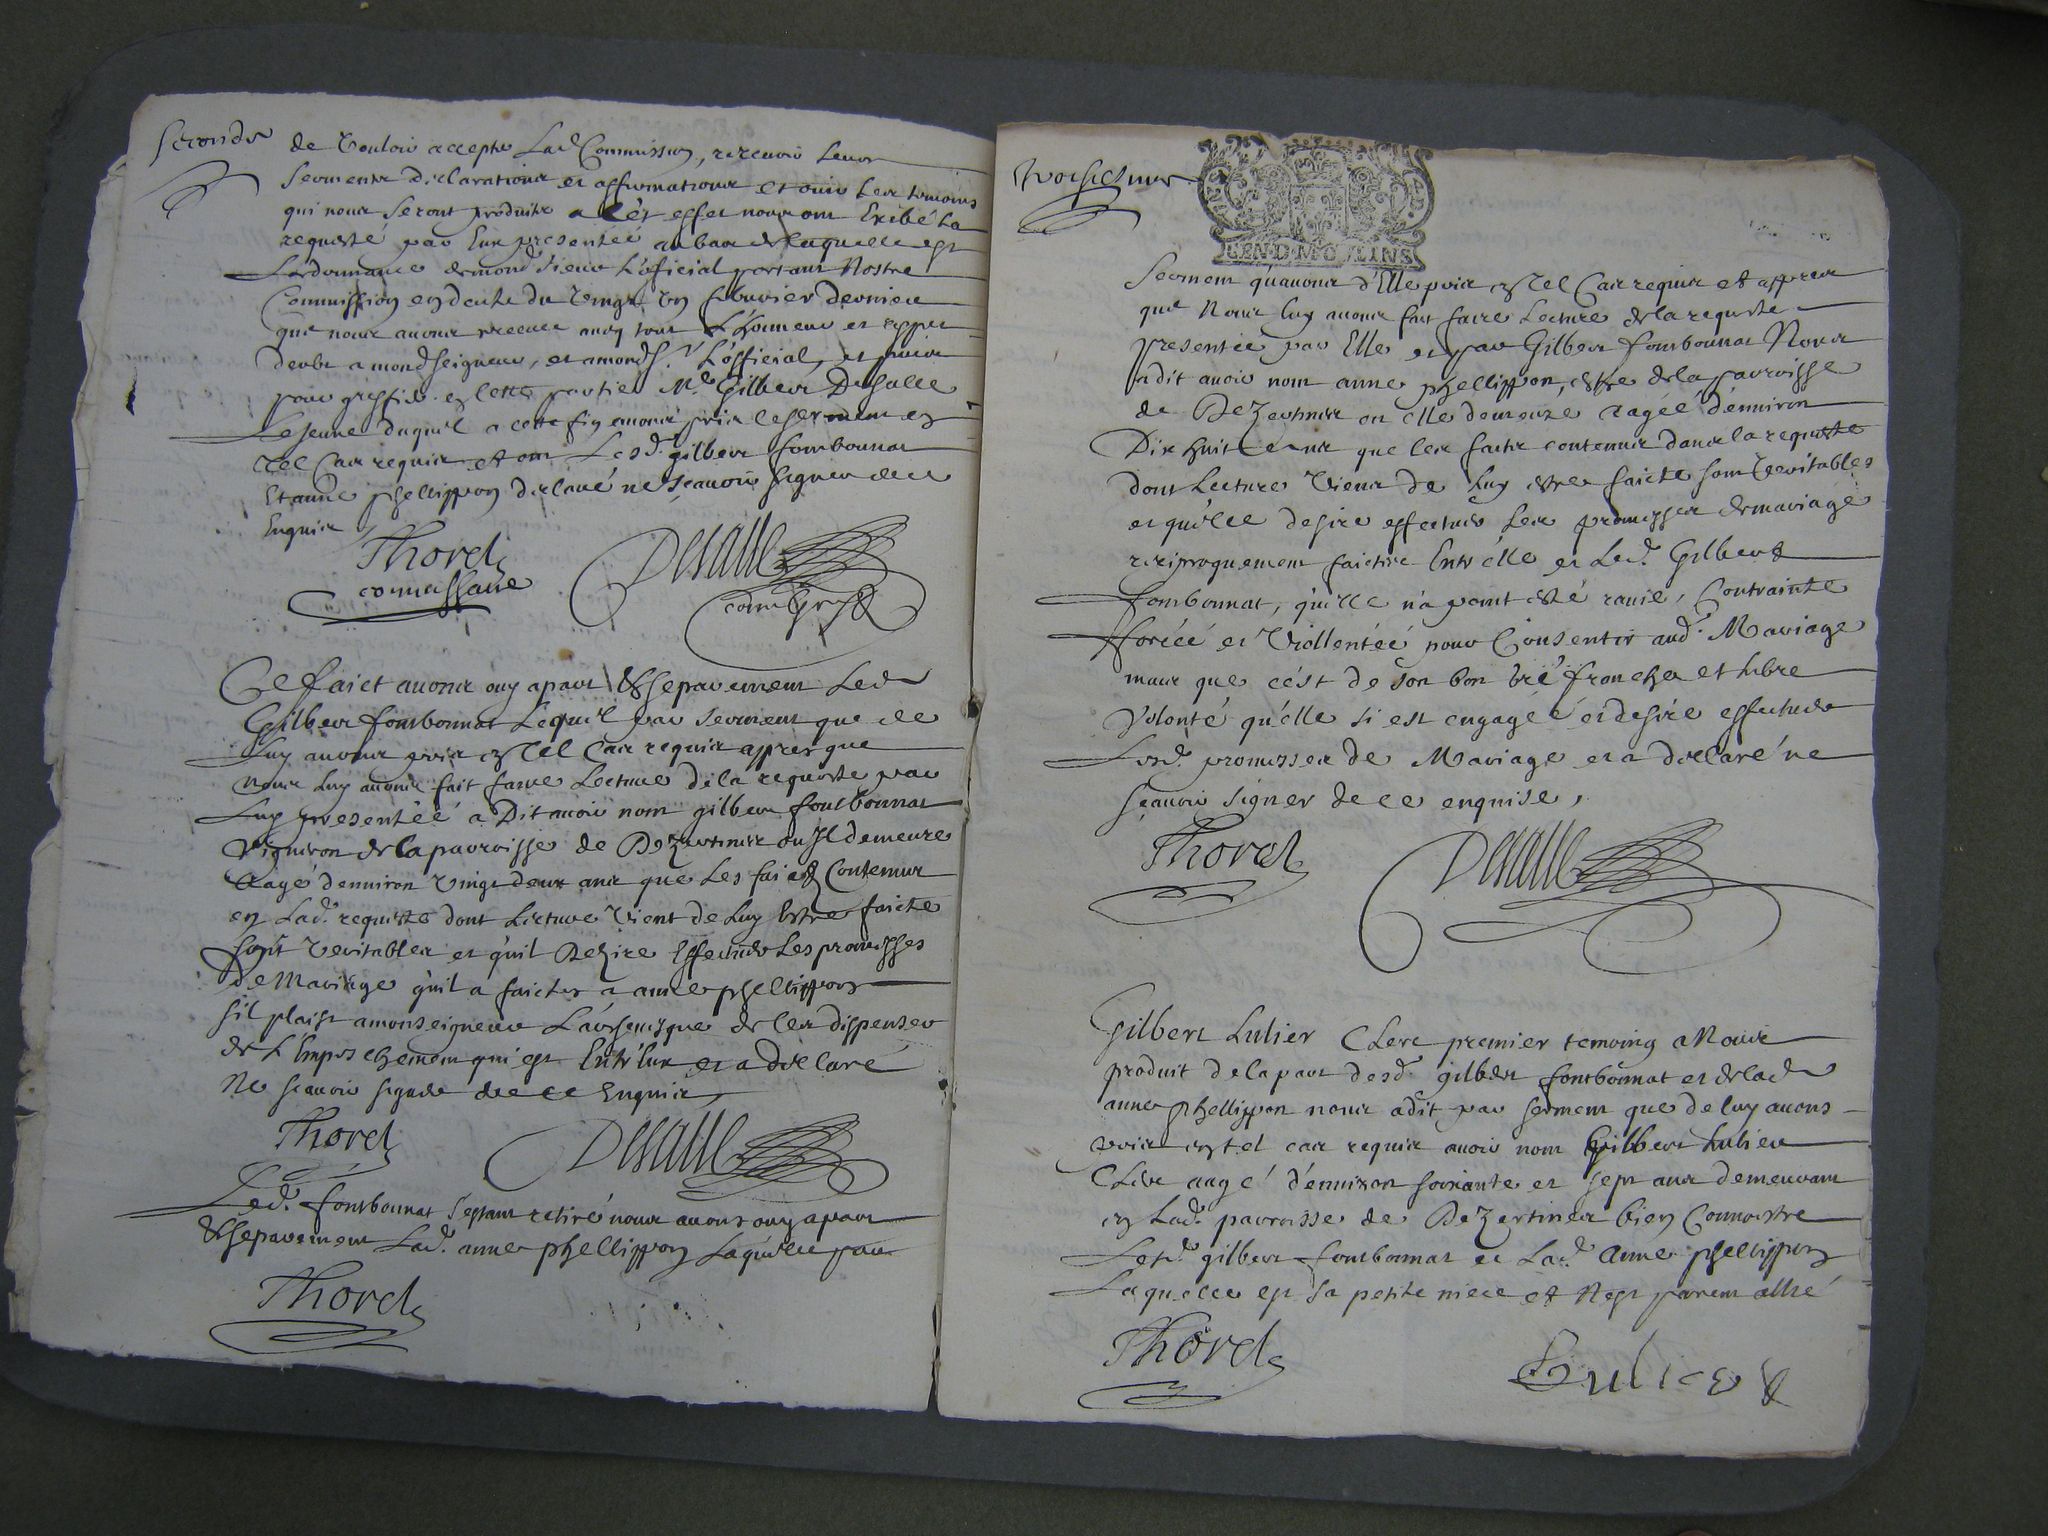 Seconde
de Vouloir accepter Lad. Commission, recevoir Leurs
serments declarations et affirmations et ouir Les temoins
qui nous seront produits a cèt effet nous ont Exibé La
requeste par Eux presentée au bas de laquelle est
Lordonnance de mond. sieur L'official portant Nostre
Commission en datte du vingt un febvrier dernier
que nous avons receue avec tout L'honneur et respect
deubt a mond seigneur, et a mond sr. L'official, et pris
pour greffier en cette partie Me. Gilbert Desalle
Le jeune duquel a cette fin avons pris le serment en
tel cas requis et ont Lesd. gilbert fontbonnat
Et anne phellippon declaré ne sçavoir signer de ce
Enquis
Thorel
commissaire
Desalle
comis greff
Ce faict avons ouy apart et separement Led.
Gilbert fontbonnat Lequel par serment que de
Luy avons pris en tel cas requis apprès que
nous Luy avons fait faire Lecture de la requeste par
Luy presentée a Dit avoir nom gilbert fontbonnat
vigneron de la parroisse de Dezertines ou Il demeure
aagé d'environ vingt deux ans que Les faicts Contenus
en Lad. requeste dont Lecture vient de Luy Estre faicte
sont veritables et qu'il Dezire Effectuer Les promesses
de Mariage qu'il a faictes a anne phellippon
s'il plaist a monseigneur L'archevesque de les dispenser
de L'Empeschement qui est Entr'Eux et a declaré
Ne scavoir signer de ce Enquis
Thorel
Desalle
Led. fontbonnat s'estant retiré nous avons ouy apart
et separement Lad. anne phellippon Laquelle par
Thorel
troisiesme
GEN.D.MOULINS
serment qu'avons d'Elle pris en tel Cas requis et appres
que Nous Luy avons fait faire Lecture de la requeste
presentée par Elle et par Gilbert fontbonnat Nous
a dit avoir nom anne phellippon, estre de la parroisse
de Dezertines ou elle demeure aagée d'environ
Dix huit ans que les faits contenus dans la requeste
dont Lecture Vient de Luy estre faicte sont veritables
et qu'elle desire effectuer Les promesses de mariage
reciproquement faictes Entr'elle et Led. Gilbert
fontbonnat, qu'elle n'a point esté ravie, Contrainte
fforcée et Viollentée pour Consentir aud. Mariage
mais que c'est de son bon gré franche et Libre
Volonté qu'elle s'i est engagée et desire effectuer
Lesd. promesses de Mariage et a declaré ne
sçavoir signer de ce enquise,
Thorel
Desalle
Gilbert Lulier Clerc premier temoing a Nous
produit de la part desd. gilbert fontbonnat et de lad.
anne phellippon nous a dit par serment que de luy avons
pris en tel cas requis avoir nom Gilbert Lulier
Clerc aagé d'environ soixante et sept ans demeurant
en Lad. parroisse de Dezertines bien Connoistre
Led. gilbert fontbonnat et Lad. Anne phellippon
Laquelle est sa petite niece et N'est parent allié
Thorel
G Lulier